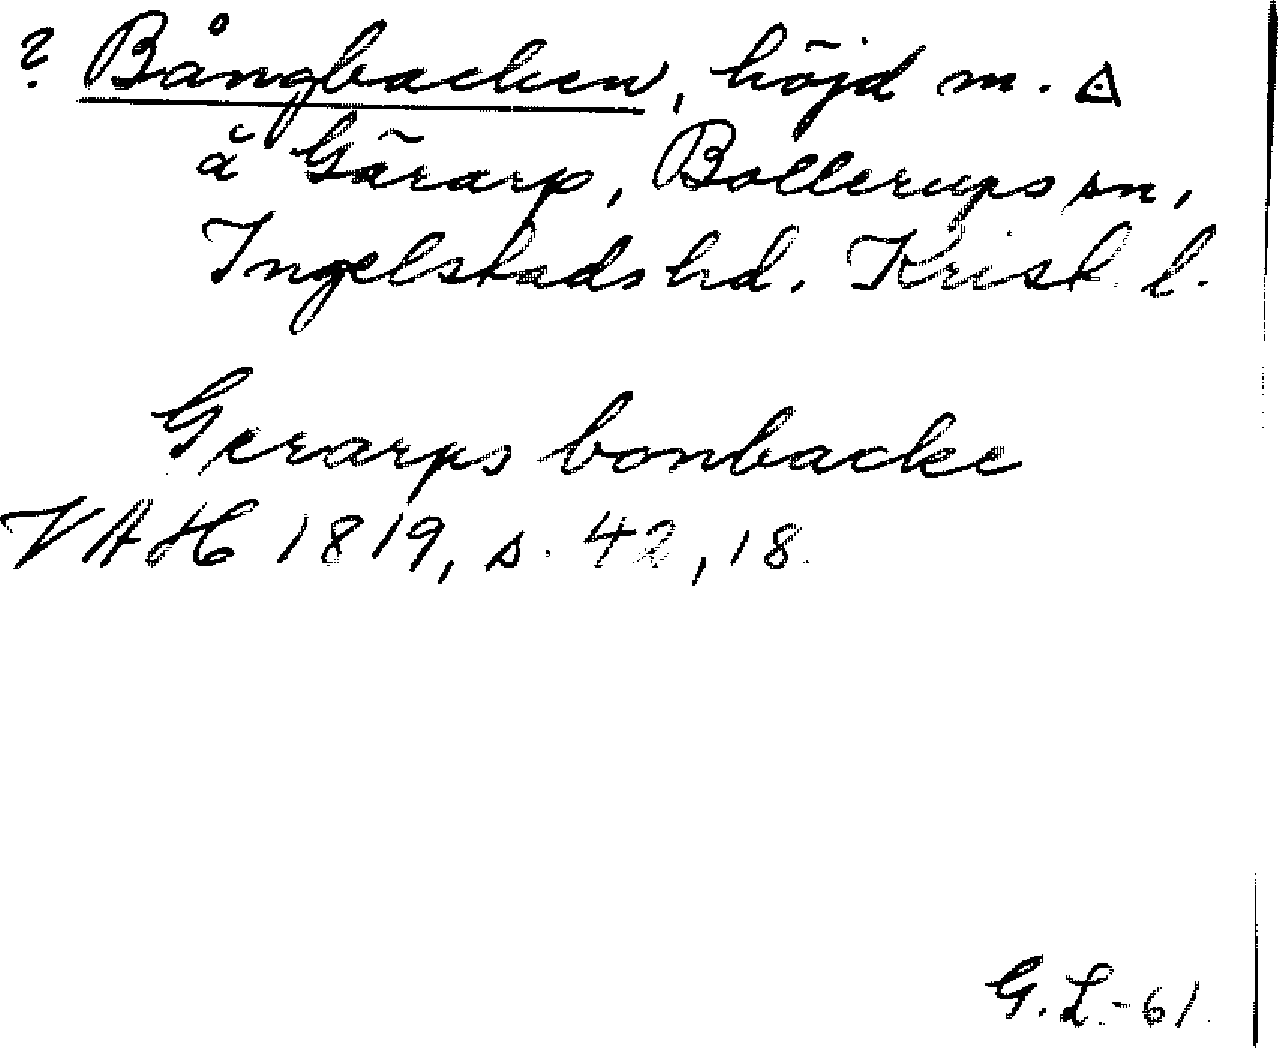 ? Bångbacken, höjd m. △
å Gärarp, Bollerups sn,
Ingelstads hd. Krist. l.
Gerarps bonbacke
VAH 1819, s. 42, 18.
G. L. -61.